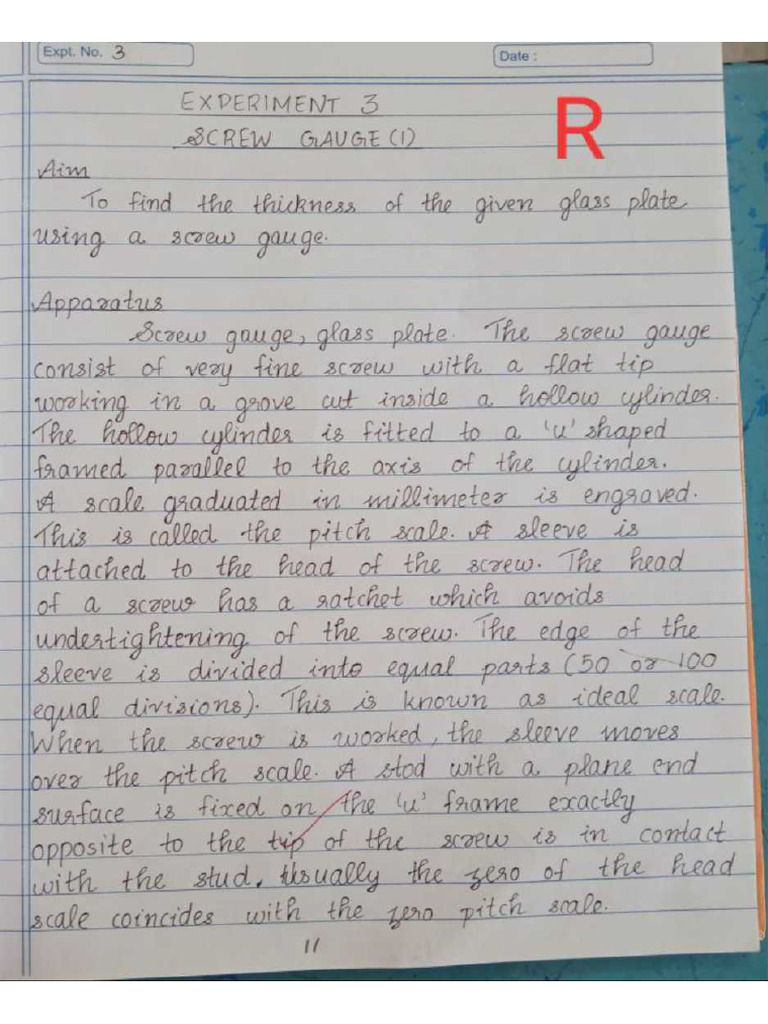 Expt. No. 3
Date :
EXPERIMENT 3
SCREW GAUGE (1)
R
Aim
To find the thickness of the given glass plate
using a screw gauge.
Apparatus
Screw gauge, glass plate. The screw gauge
consist of very fine screw with a flat tip
working in a grove cut inside a hollow cylinder.
The hollow cylinder is fitted to a 'u' shaped
framed parallel to the axis of the cylinder.
A scale graduated in millimeter is engraved.
This is called the pitch scale. A sleeve is
attached to the head of the screw. The head
of a screw has a ratchet which avoids
undertightening of the screw. The edge of the
sleeve is divided into equal parts (50 or 100
equal divisions). This is known as ideal scale.
When the screw is worked, the sleeve moves
over the pitch scale. A stod with a plane end
surface is fixed on the 'u' frame exactly
opposite to the tip of the screw is in contact
with the stud. Usually the zero of the head
scale coincides with the zero pitch scale.
11